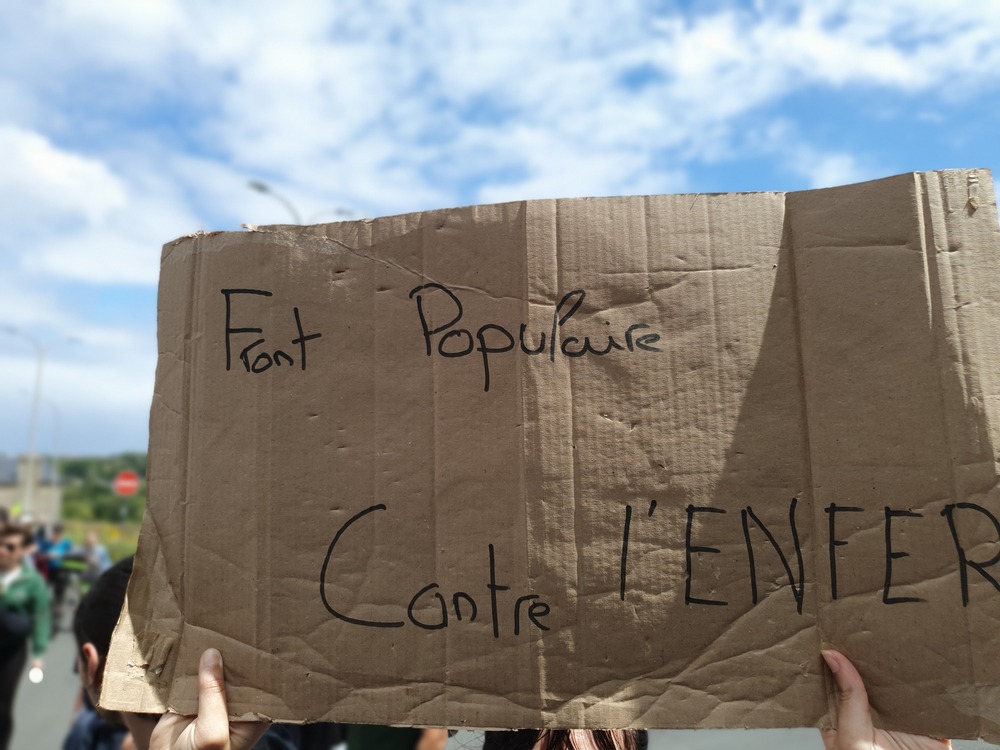 Front Populaire
Contre l'ENFER